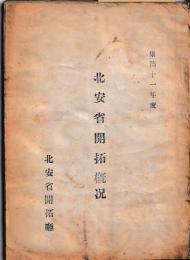 康徳十一年度
北安省開拓概況
北安省開拓廳